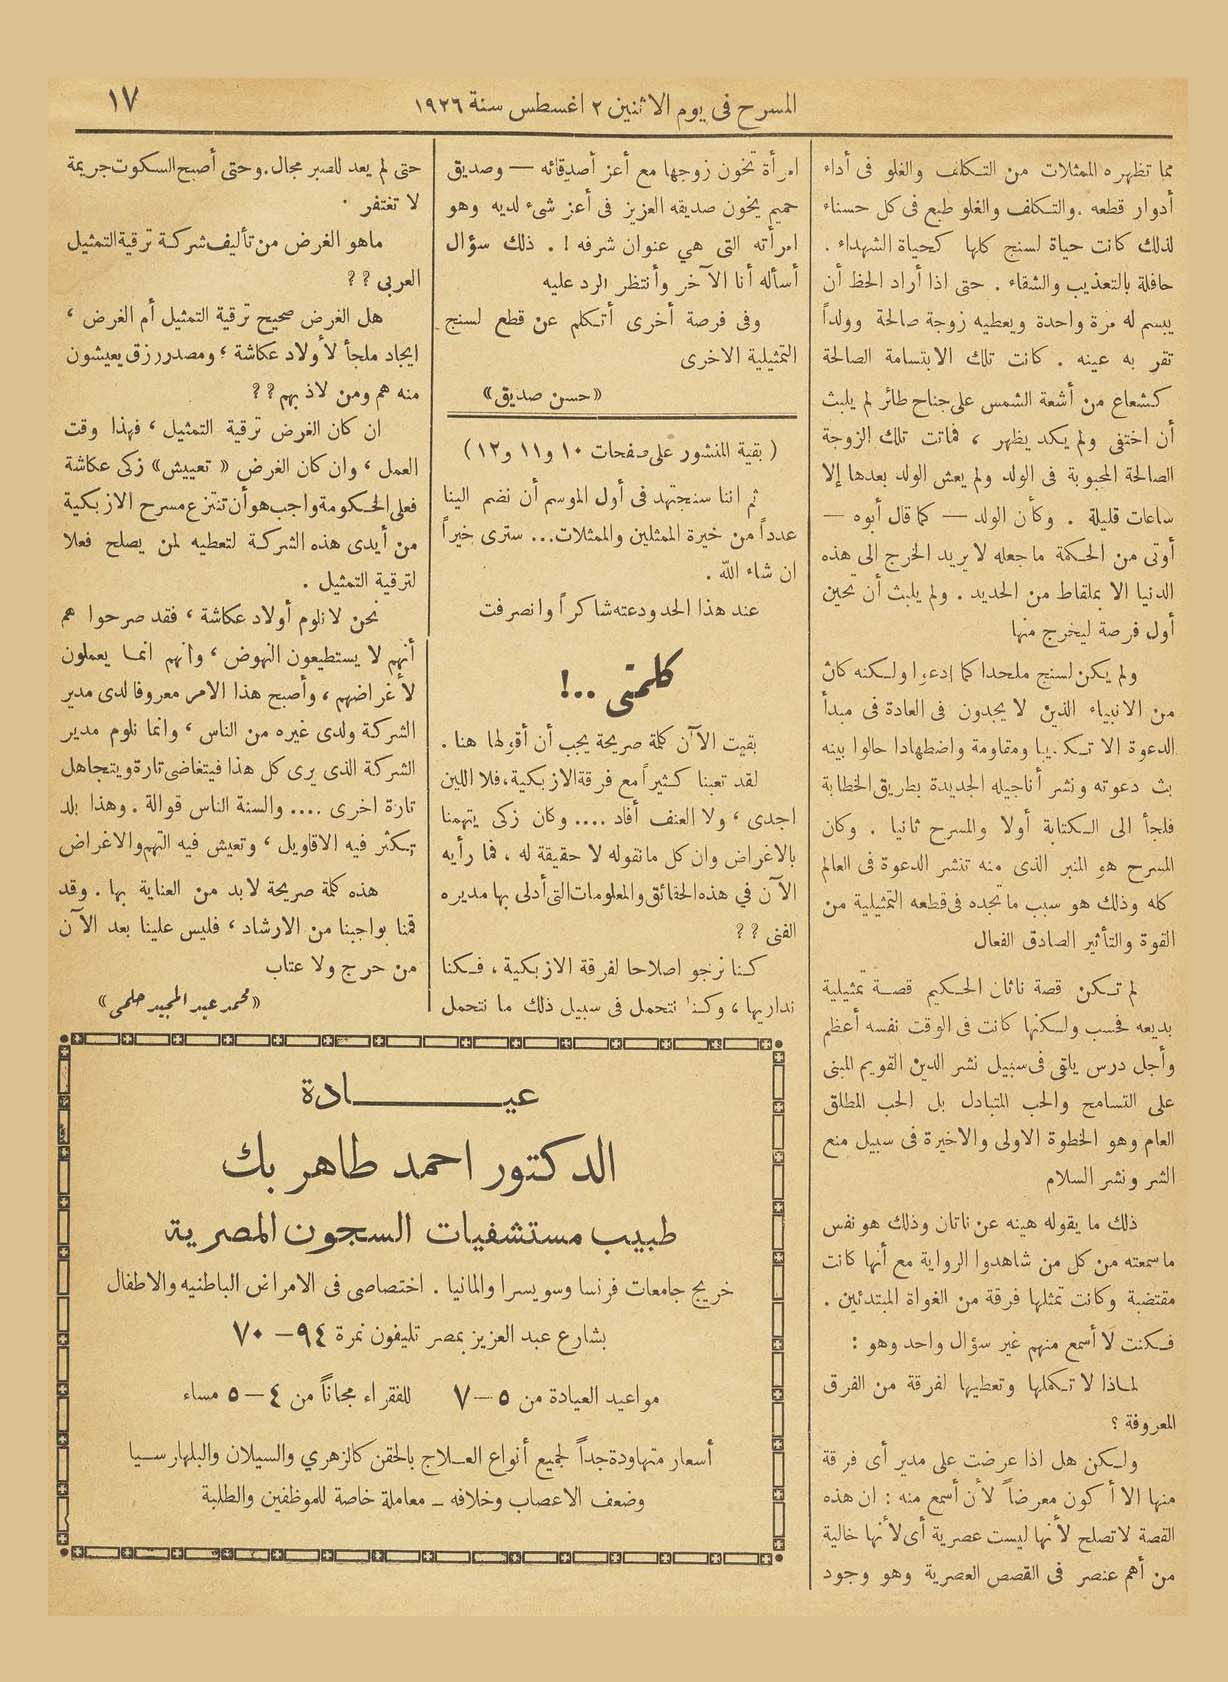 المسرح فى يوم الاثنين ٢ اغسطس سنة ١٩٢٦
١٧
مما تظهره الممثلات من التكلف والغلو فى أداء
أدوار قطعه . والتكلف والغلو طبع فى كل حسناء
لذلك كانت حياة لسنج كلها كحياة الشهداء .
حافلة بالتعذيب والشقاء . حتى اذا أراد الحظ أن
يبسم له مرة واحدة ويعطيه زوجة صالحة وولداً
تقر به عينه . كانت تلك الابتسامة الصالحة
كشعاع من أشعة الشمس على جناح طائر لم يلبث
أن اختفى ولم يكد يظهر ، فماتت تلك الزوجة
الصالحة المحبوبة فى الولد ولم يعش الولد بعدها إلا
ساعات قليلة . وكأن الولد — كما قال أبوه —
أوتى من الحكمة ما جعله لا يريد الخرج الى هذه
الدنيا الا بملقاط من الحديد . ولم يلبث أن تحين
أول فرصة ليخرج منها
ولم يكن لسنج ملحدا كما إدعوا ولكنه كان
من الانبياء الذين لا يجدون فى العادة فى مبدأ
الدعوة الا تكذيبا ومقاومة واضطهادا حالوا بينه
بث دعوته ونشر أناجيله الجديدة بطريق الخطابة
فلجأ الى الكتابة أولا والمسرح ثانيا . وكان
المسرح هو المنبر الذى منه تنشر الدعوة فى العالم
كله وذلك هو سبب ما نجده فى قطعه التمثيلية من
القوة والتأثير الصادق الفعال
لم تكن قصة ناثان الحكيم قصة تمثيلية
بديعه فحسب ولكنها كانت فى الوقت نفسه أعظم
وأجل درس يلقى فى سبيل نشر الدين القويم المبنى
على التسامح والحب المتبادل بل الحب المطلق
العام وهو الخطوة الاولى والاخيرة فى سبيل منع
الشر ونشر السلام
ذلك ما يقوله هينه عن ناتان وذلك هو نفس
ما سمعته من كل من شاهدوا الرواية مع أنها كانت
مقتضبة وكانت تمثلها فرقة من الغواة المبتدئين .
فكنت لا أسمع منهم غير سؤال واحد وهو :
لماذا لا تكملها وتعطيها لفرقة من الفرق
المعروفة ؟
ولكن هل اذا عرضت على مدير أى فرقة
منها الا أكون معرضاً لأن أسمع منه : ان هذه
القصة لا تصلح لأنها ليست عصرية أى لأنها خالية
من أهم عنصر فى القصص العصرية وهو وجود
امرأة تخون زوجها مع أعز أصدقائه — وصديق
حميم يخون صديقه العزيز فى أعز شىء لديه وهو
امرأته التى هي عنوان شرفه ! . ذلك سؤال
أسأله أنا الآخر وأنتظر الرد عليه
وفى فرصة أخرى أتكلم عن قطع لسنج
التمثيلية الاخرى
«حسن صديق»
( بقية المنشور على صفحات ١٠ و١١ و١٢)
ثم اننا سنجتهد فى أول الموسم أن نضم الينا
عدداً من خيرة الممثلين والممثلات... سترى خيراً
ان شاء الله .
عند هذا الحد ودعته شاكراً وانصرفت
كلمتى ..!
بقيت الآن كلمة صريحة يجب أن أقولها هنا .
لقد تعبنا كثيراً مع فرقة الازبكية، فلا اللين
اجدى ، ولا العنف أفاد .... وكان زكى يتهمنا
بالاغراض وان كل ما نقوله لا حقيقة له ، فما رأيه
الآن في هذه الحقائق والمعلومات التى أدلى بها مديره
الفنى ؟ ؟
كنا نرجو اصلاحا لفرقة الازبكية ، فكنا
نداريها ، وكنا نتحمل فى سبيل ذلك ما نتحمل
حتى لم يعد للصبر مجال . وحتى أصبح السكوت جريمة
لا تغتفر .
ماهو الغرض من تأليف شركة ترقية التمثيل
العربى ؟ ؟
هل الغرض صحيح ترقية التمثيل أم الغرض ،
ايجاد ملجأ لأولاد عكاشة ، ومصدر رزق يعيشون
منه هم ومن لاذ بهم ؟ ؟
ان كان الغرض ترقية التمثيل ، فهذا وقت
العمل ، وان كان الغرض « تعييش » زكى عكاشة
فعلى الحكومة واجب هو أن تنتزع مسرح الازبكية
من أيدى هذه الشركة لتعطيه لمن يصلح فعلا
لترقية التمثيل .
نحن لا نلوم أولاد عكاشة ، فقد صرحوا هم
أنهم لا يستطيعون النهوض ، وانهم انما يعملون
لأغراضهم ، وأصبح هذا الامر معروفا لدى مدير
الشركة ولدى غيره من الناس ، وانما نلوم مدير
الشركة الذى يرى كل هذا فيتغاضى تارة ويتجاهل
تارة اخرى .... والسنة الناس قوالة . وهذا بلد
تكثر فيه الاقاويل ، وتعيش فيه التهم والاغراض
هذه كلمة صريحة لابد من العناية بها . وقد
قمنا بواجبنا من الارشاد ، فليس علينا بعد الآن
من حرج ولا عتاب
«محمد عبد المجيد حلمى»
عيـــــــادة
الدكتور احمد طاهر بك
طبيب مستشفيات السجون المصرية
خريج جامعات فرنسا وسويسرا والمانيا . اختصاصى فى الامراض الباطنيه والاطفال
بشارع عبد العزيز بمصر تليفون نمرة ٩٤ – ٧٠
مواعيد العيادة من ٥ – ٧ للفقراء مجاناً من ٤ – ٥ مساء
أسعار متهاودة جداً لجميع أنواع العلاج بالحقن كالزهري والسيلان والبلهارسيا
وضعف الاعصاب وخلافه – معاملة خاصة للموظفين والطلبة